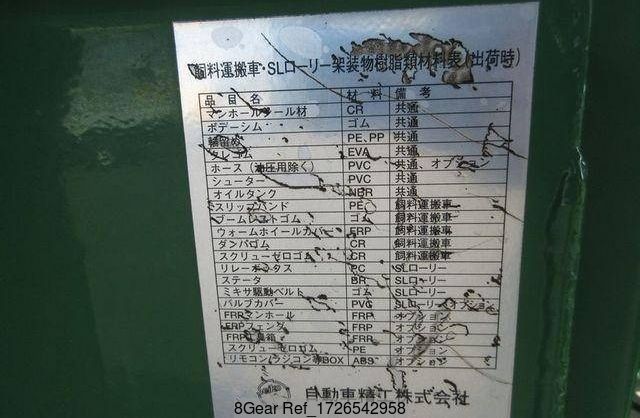 飼料運搬車・SLローリー架装物樹脂類材料表(出荷時)
品目名 材料 備考
マンホールシール材 CR 共通
ボデーシム ゴム 共通
輪留め PE、PP 共通
クレゴム EVA 共通
ホース(油圧用除く) PVC 共通、オプション
シューター PVC 共通
オイルタンク NBR 共通
スリップバンド PE 飼料運搬車
ブームレストゴム ゴム 飼料運搬車
ウォームホイールカバー FRP 飼料運搬車
ダンパゴム CR 飼料運搬車
スクリューゼロゴム CR 飼料運搬車
リレーボックス PC SLローリー
ステータ BR SLローリー
ミキサ駆動ベルト ゴム SLローリー
バルブカバー PVC SLローリーオプション
FRPマンホール FRP オプション
FRPフェンダ FRP オプション
FRP工具箱 FRP オプション
スクリューゼロゴム PE オプション
リモコン(ラジコン)等BOX ABS オプション
自動車精工株式会社
8Gear Ref_1726542958